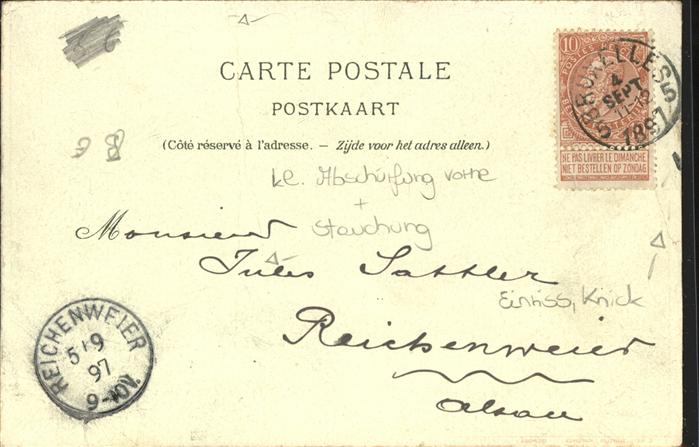 CARTE POSTALE
POSTKAART
(Côté réservé à l'adresse. – Zijde voor het adres alleen.)
10
NE PAS LIVRER LE DIMANCHE
NIET BESTELLEN OP ZONDAG
BRUXELLES 5
4
SEPT
1897
kl. Abschürfung vorne
+
Stauchung
Monsieur
Jules Sattler
Einriss, Knick
Reichenweier
Alsace
REICHENWEIER
5 9
97
9-10V.